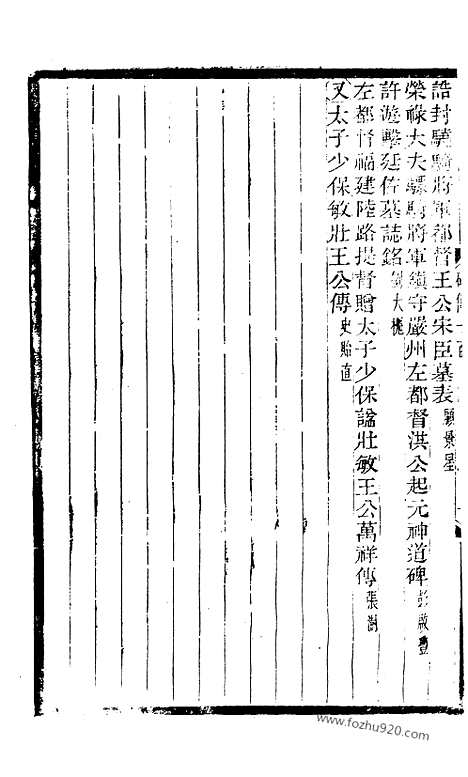 誥封驍騎將軍都督王公宋臣墓表 顧景星
榮祿大夫驃騎將軍鎮守嚴州左都督洪公起元神道碑 彭啟豐
許遊擊延佐墓誌銘 劉大櫆
左都督福建陸路提督贈太子少保謚壯敏王公萬祥傳 張澍
又太子少保敏壯王公傳 史貽直
www.fozhu920.com